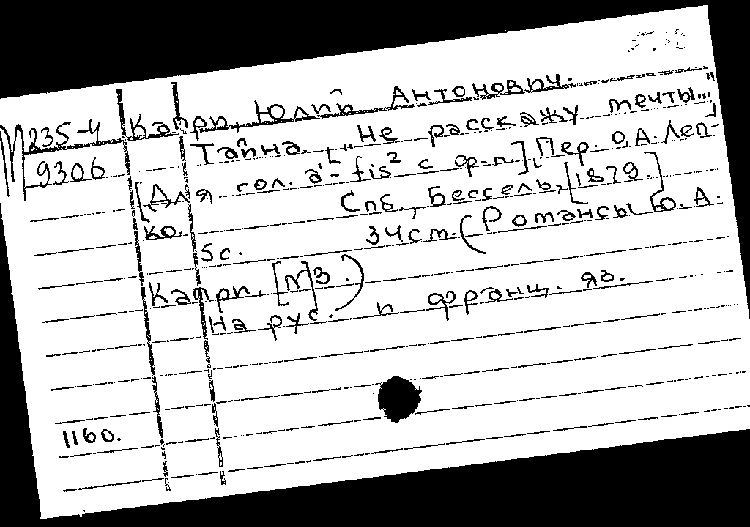 М 235-4
9306
Капри, Юлий Антонович.
Тайна. „Не расскажу мечты..."
[Для гол. a'- fis² с ф-п.] [Пер. О.А. Леп-
ко. Спб., Бессель, [1879.]
5с. 34см. (Романсы Ю. А.
Капри. [№3.)
На рус. и франц. яз.
1160.